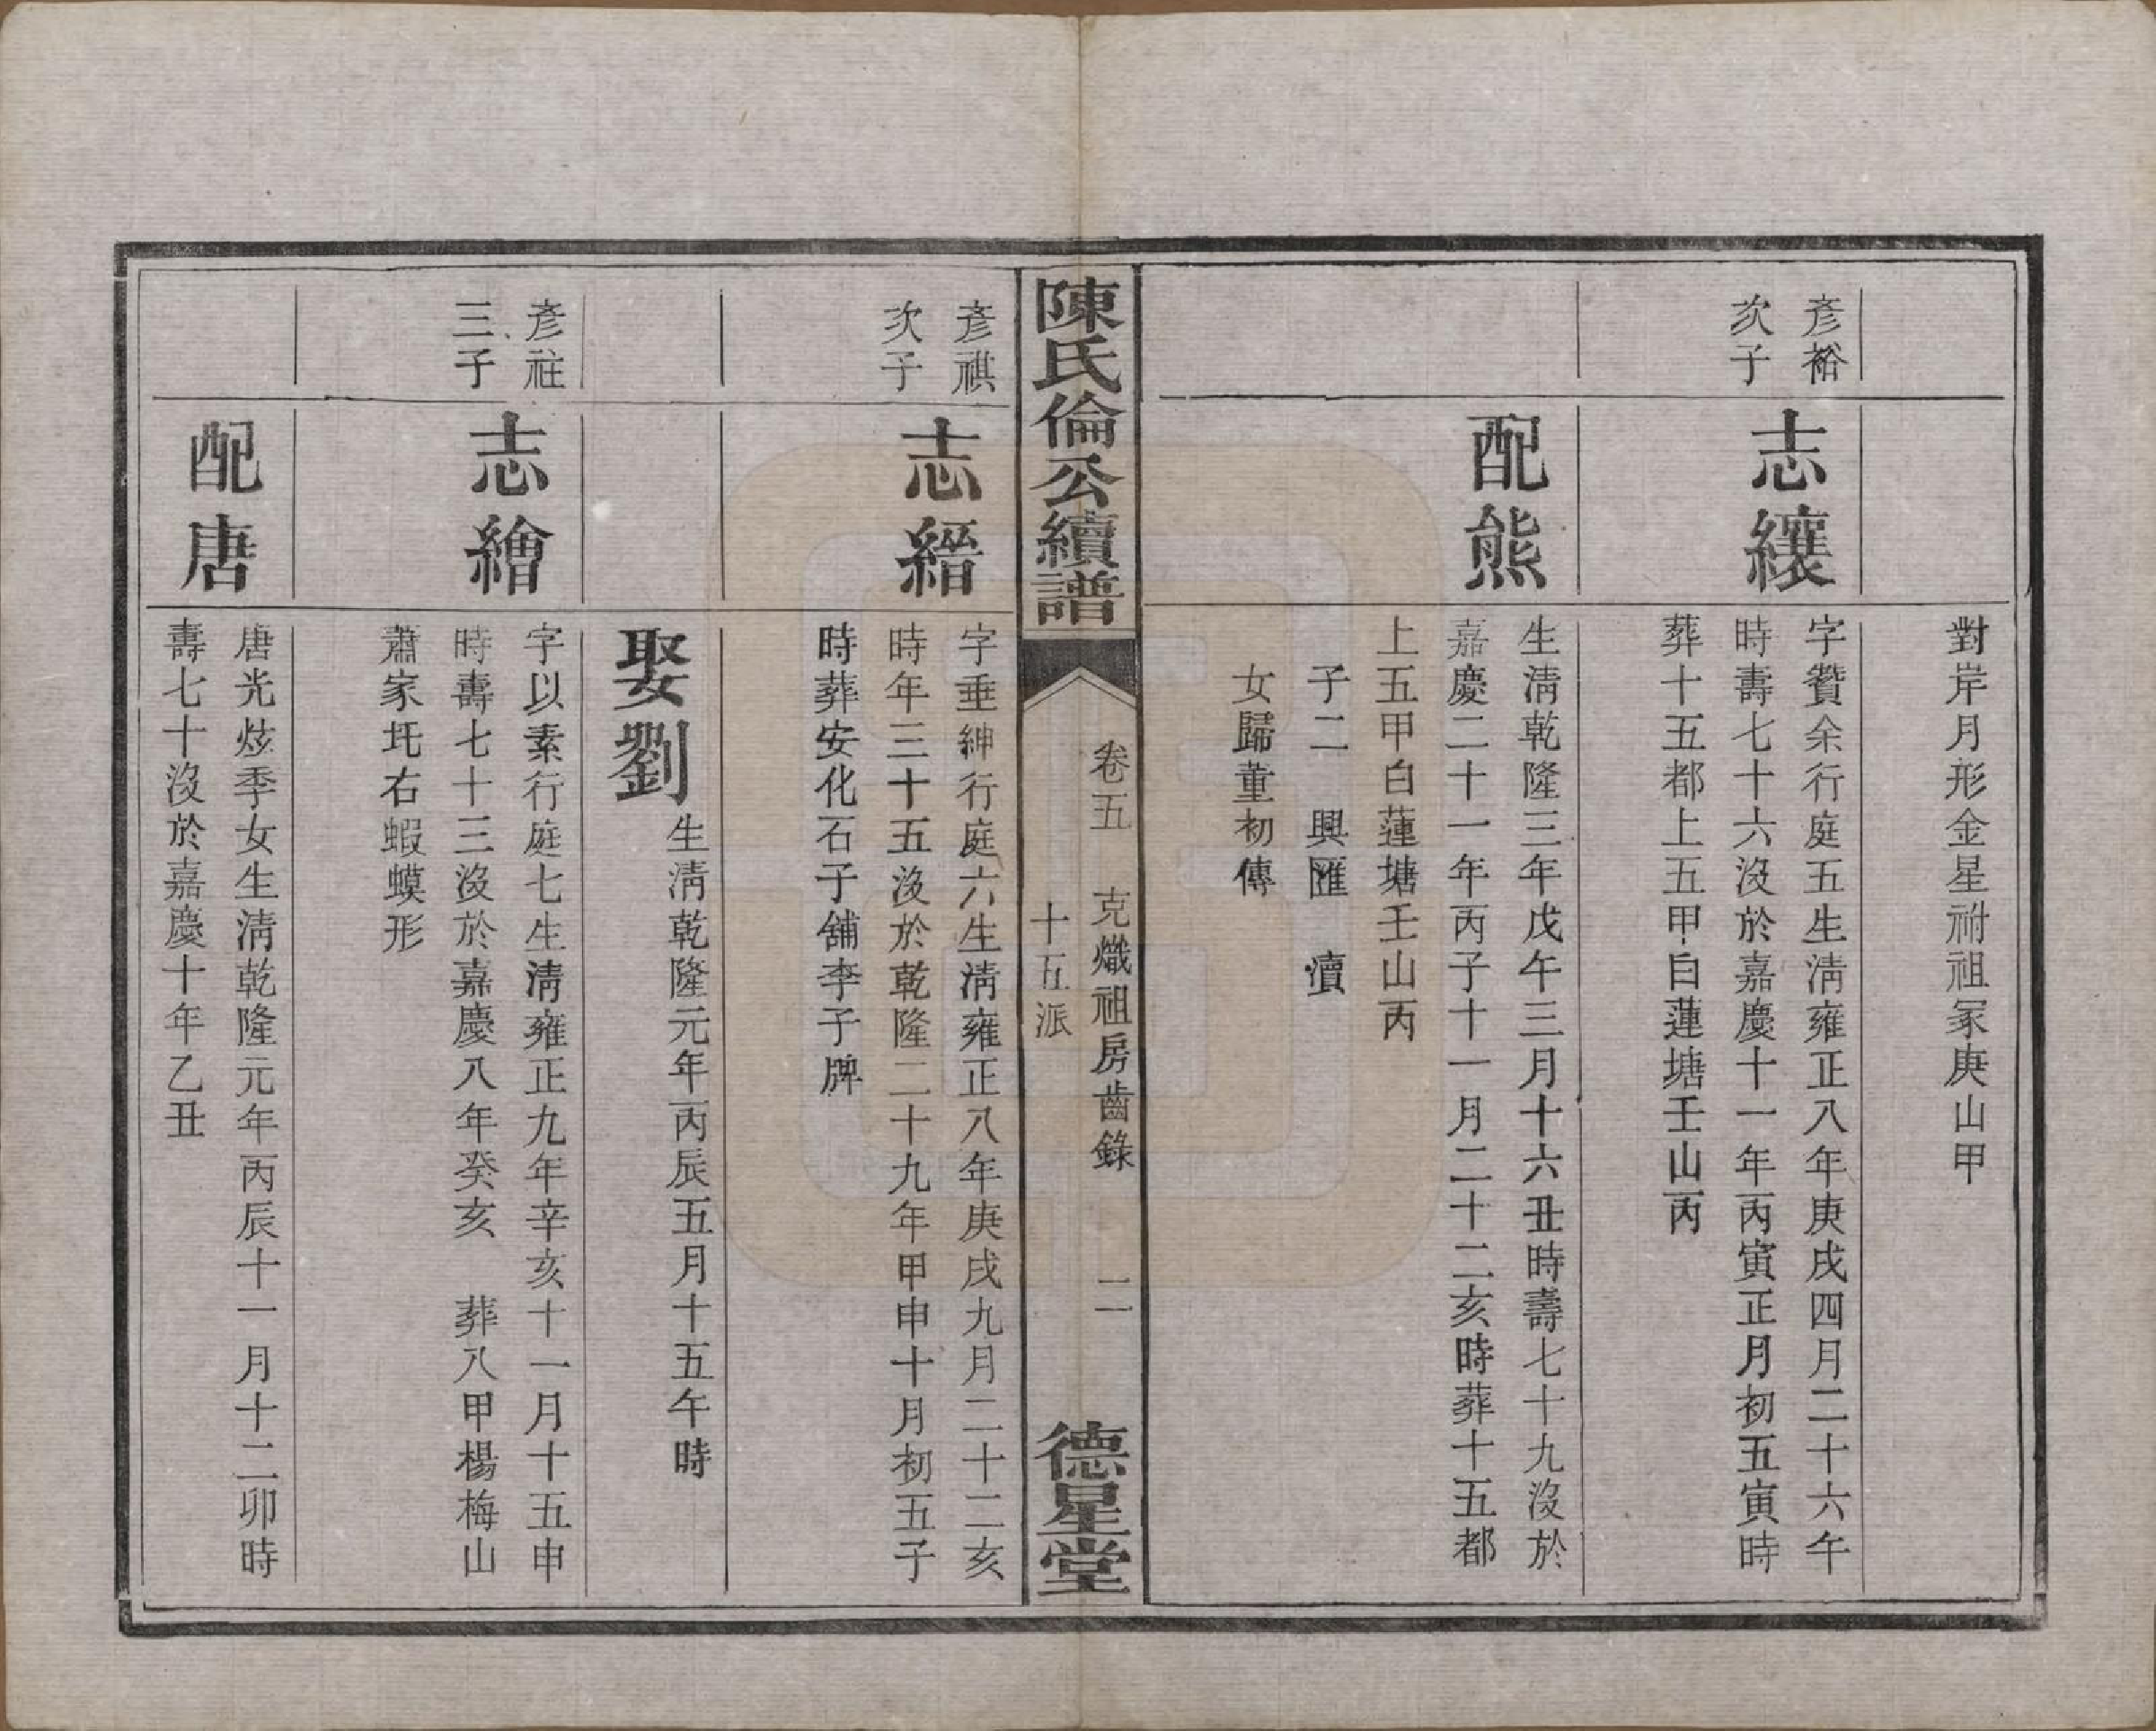 對岸月形金星祔祖冢庚山甲
彥裕
次子
志纕
字贊余行庭五生淸雍正八年庚戌四月二十六午
時壽七十六沒於嘉慶十一年丙寅正月初五寅時
葬十五都上五甲白蓮塘壬山丙
配熊
生淸乾隆三年戊午三月十六丑時壽七十九沒於
嘉慶二十一年丙子十一月二十二亥時葬十五都
上五甲白蓮塘壬山丙
子二 興匯 瀆
女歸董初傳
陳氏倫公續譜
卷五 克熾祖房齒錄 二
十五派
德星堂
彥祺
次子
志縉
字垂紳行庭六生淸雍正八年庚戌九月二十二亥
時年三十五沒於乾隆二十九年甲申十月初五子
時葬安化石子舖李子牌
娶劉
生淸乾隆元年丙辰五月十五午時
彥䄂
三子
志繪
字以素行庭七生淸雍正九年辛亥十一月十五申
時壽七十三沒於嘉慶八年癸亥 葬八甲楊梅山
蕭家圫右蝦蟆形
配唐
唐光炫季女生淸乾隆元年丙辰十一月十二卯時
壽七十沒於嘉慶十年乙丑